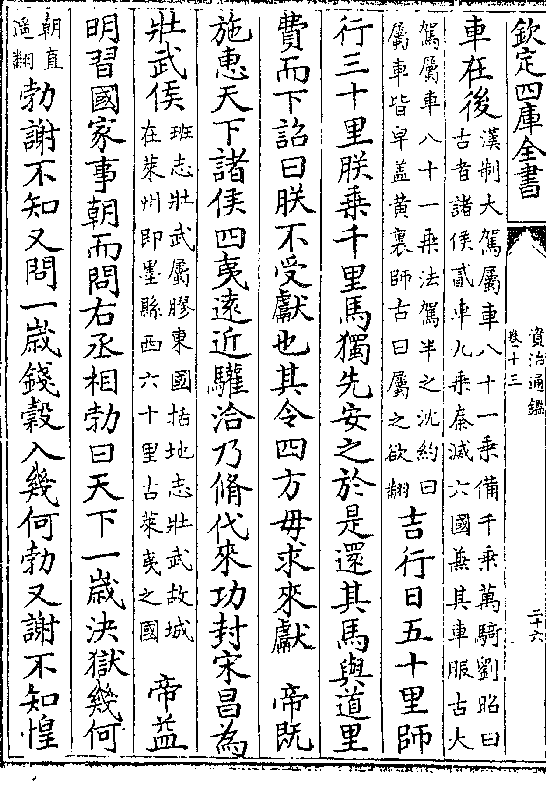 欽定四庫全書
資治通鑑
卷十三
二十六
車在後漢制大駕屬車八十一乘備千乘萬騎劉昭曰
古者諸侯貳車九乘秦滅六國兼其車服古大
駕屬車八十一乘法駕半之沈約曰
屬車皆皁蓋黃裏師古曰屬之欲翻吉行日五十里師
行三十里朕乘千里馬獨先安之於是還其馬與道里
費而下詔曰朕不受獻也其令四方毋求來獻 帝既
施惠天下諸侯四夷遠近驩洽乃脩代來功封宋昌為
壯武侯班志壯武屬膠東國括地志壯武故城
在萊州即墨縣西六十里古萊夷之國 帝益
明習國家事朝而問右丞相勃曰天下一歲決獄幾何
朝直
遙翻勃謝不知又問一歲錢穀入幾何勃又謝不知惶